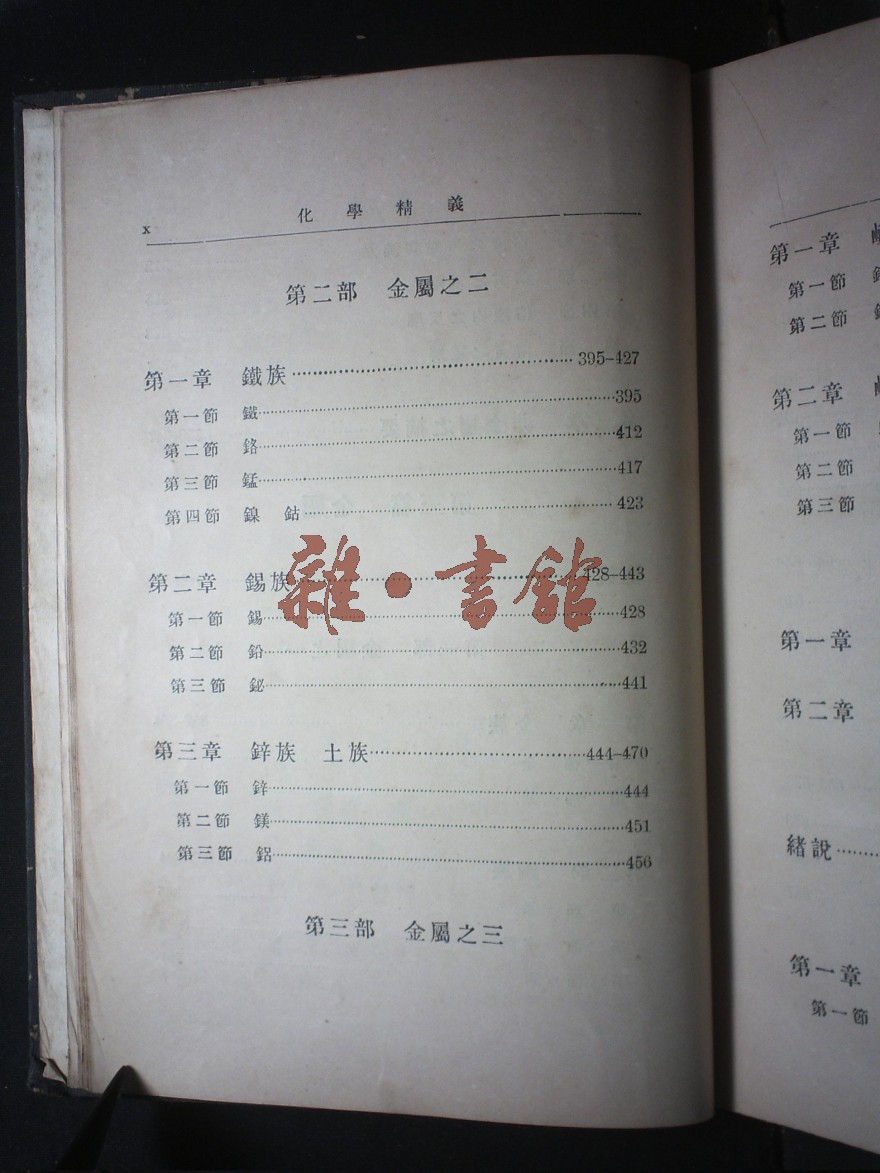 x 化學精義
第二部 金屬之二
第一章 鐵族……395–427
第一節 鐵……395
第二節 鉻……412
第三節 錳……417
第四節 鎳 鈷……423
第二章 錫族……428–443
第一節 錫……428
第二節 鉛……432
第三節 鉍……441
第三章 鋅族 土族……444–470
第一節 鋅……444
第二節 鎂……451
第三節 鋁……456
第三部 金屬之三
雜·書館
第一章
第一節
第二節
第二章
第一節
第二節
第三節
第一章
第二章
緒說……
第一章
第一節